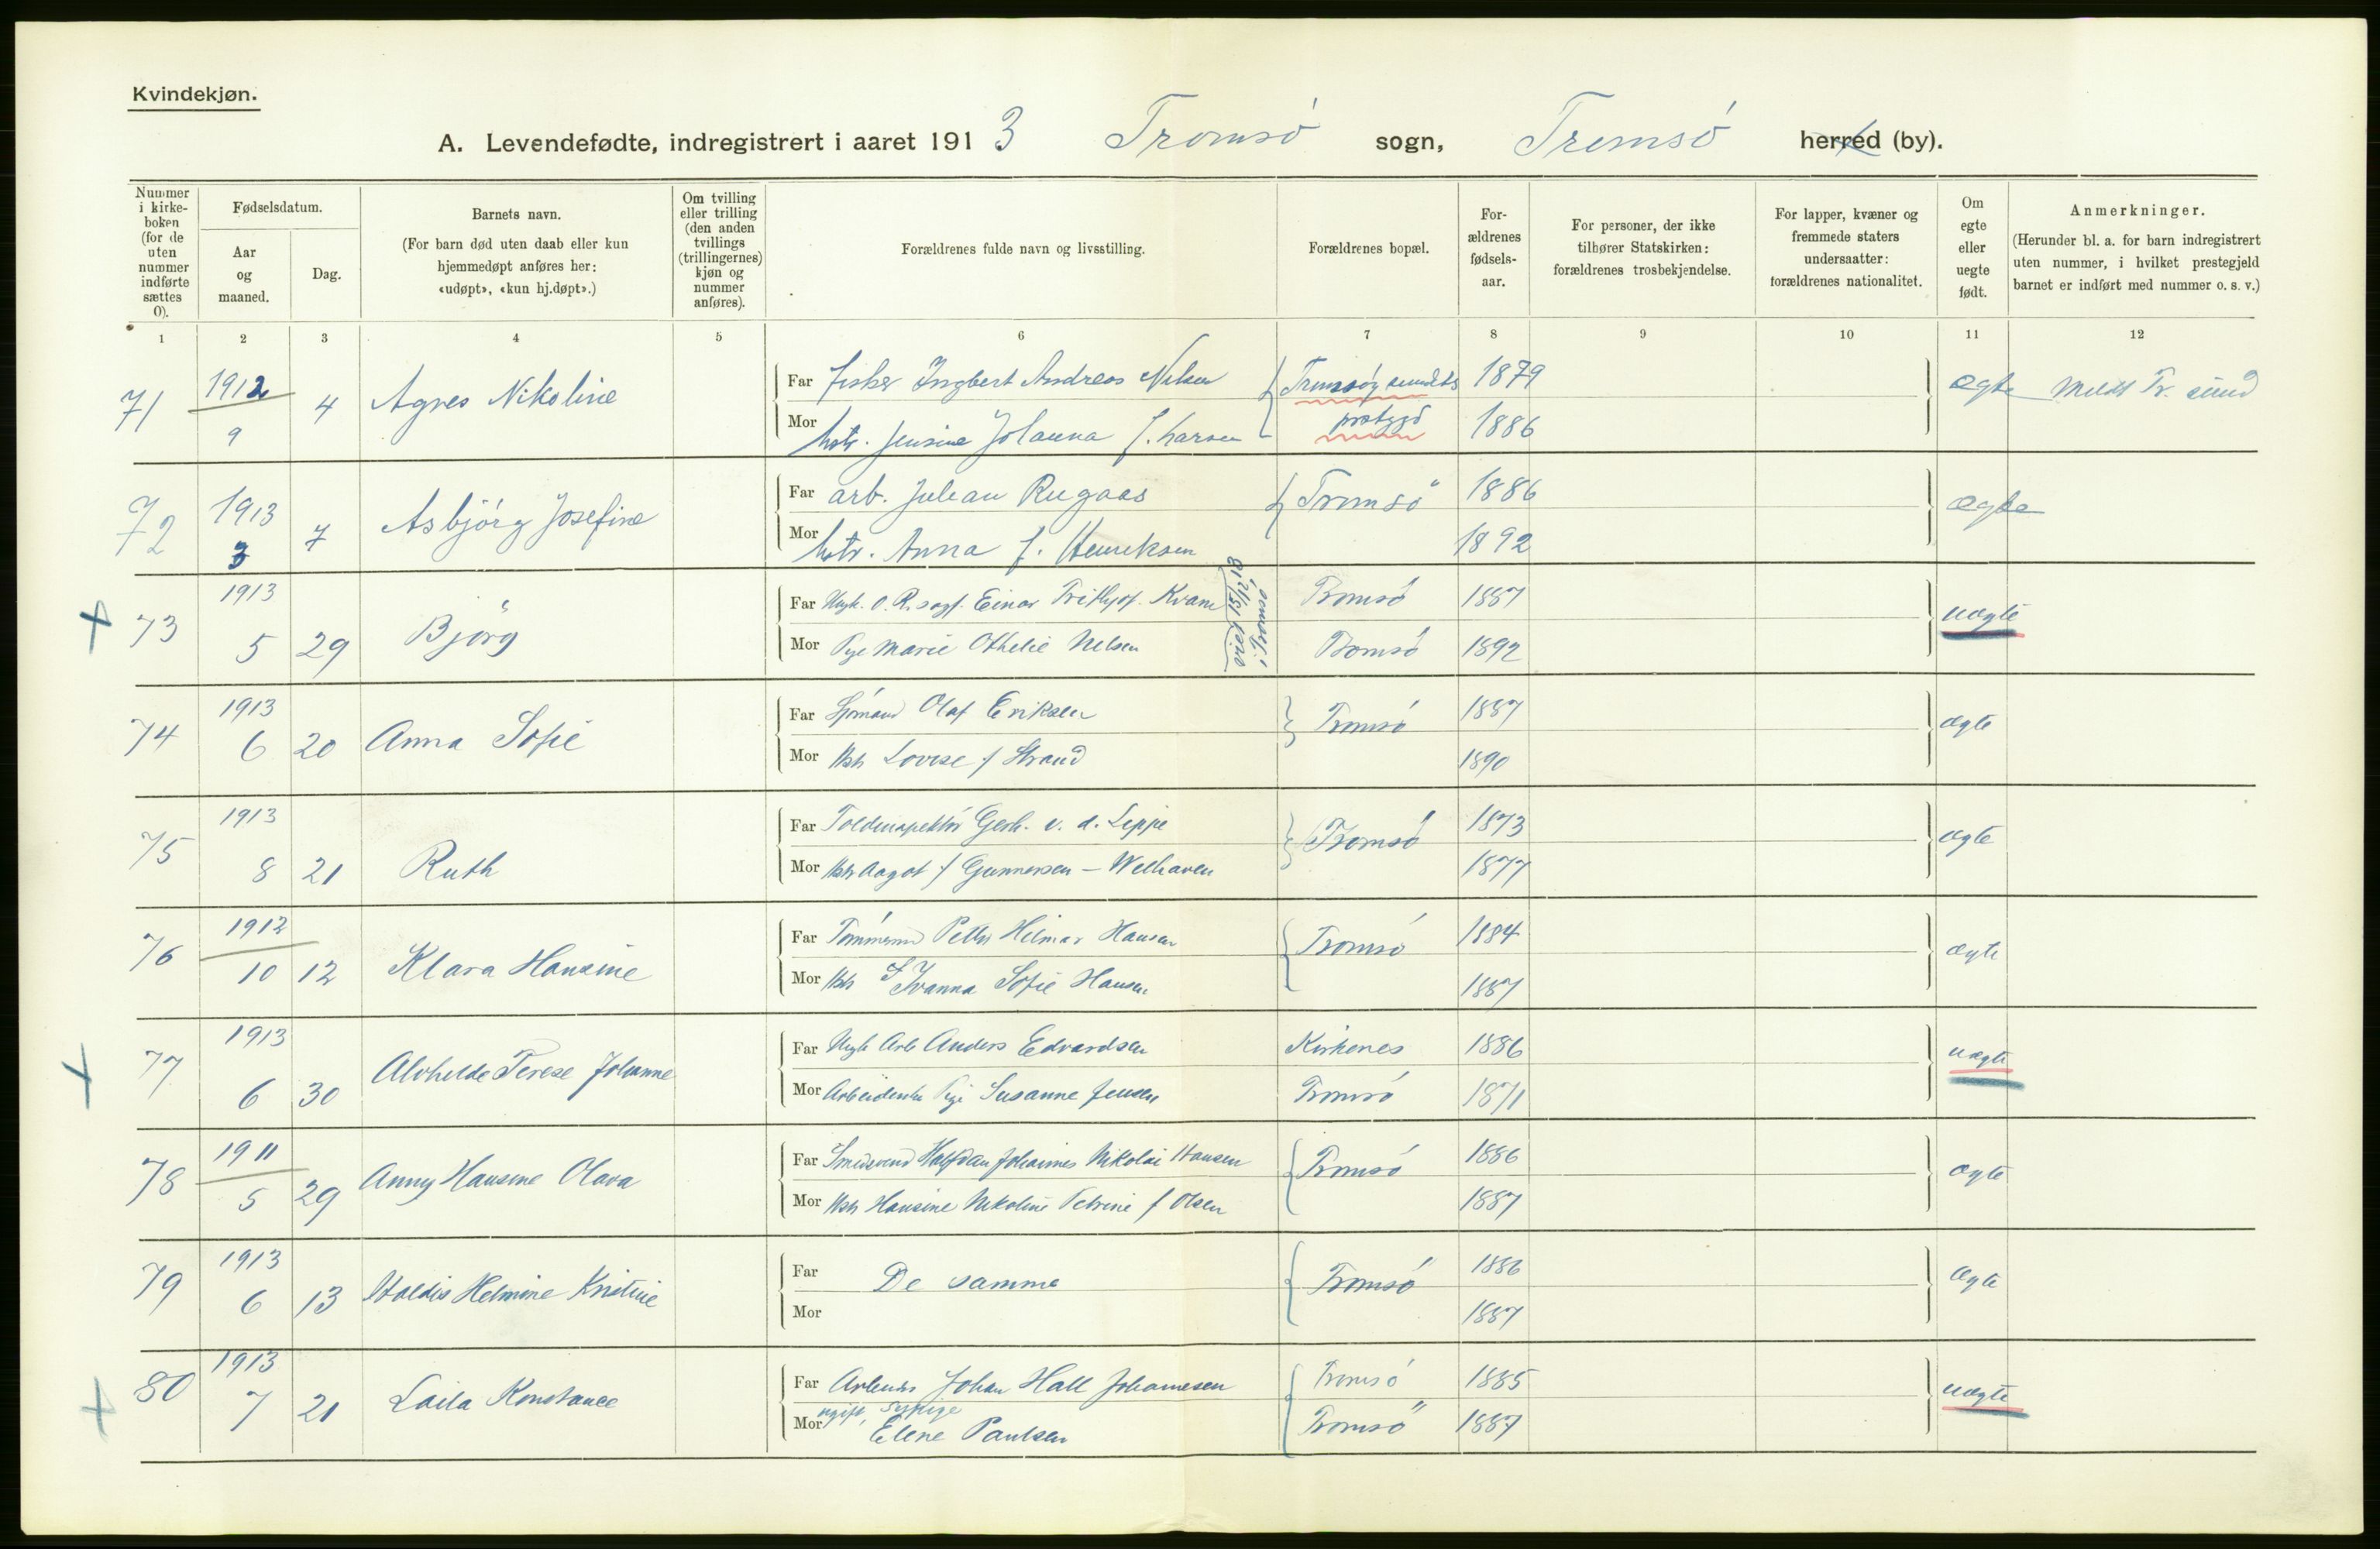 Kvindekjøn.
A. Levendefødte, indregistrert i aaret 1913 Tromsö sogn, Tromsö herred (by).
Nummer i kirke-boken (for de uten nummer indførte sættes 0).
Fødselsdatum.
Aar og maaned.
Dag.
Barnets navn.
(For barn død uten daab eller kun hjemmedøpt anføres her: «udøpt», «kun hj.døpt».)
Om tvilling eller trilling (den anden tvillings (trillingernes) kjøn og nummer anføres).
Forældrenes fulde navn og livsstilling.
Forældrenes bopæl.
For-ældrenes fødsels-aar.
For personer, der ikke tilhører Statskirken: forældrenes trosbekjendelse.
For lapper, kvæner og fremmede staters undersaatter: forældrenes nationalitet.
Om egte eller uegte født.
Anmerkninger.
(Herunder bl. a. for barn indregistrert uten nummer, i hvilket prestegjeld barnet er indført med nummer o. s. v.)
1 2 3 4 5 6 7 8 9 10 11 12
71 1912 9 4 Agnes Nikoline
Far fisker Ingbert Andreas Nilsen 1879 ægte
Mor hstr. Jensine Johanna f. Larsen 1886
72 1913 3 7 Asbjörg Josefine
Far arb. Julian Rugaas Tromsö 1886 ægte
Mor hstr. Anna f. Henriksen 1892
73 1913 5 29 Björg
Far Einar Kvam Tromsö 1887 uægte
Mor Pige Marie Othelie Nilsen Tromsö 1892
i Tromsö
74 1913 6 20 Anna Sofie
Far Sjömand Olaf Eriksen Tromsö 1887 ægte
Mor Hstr Lovise f Strand 1890
75 1913 8 21 Ruth
Far Toldinspektör Gerh. v. d. Lippe Tromsö 1873 ægte
Mor Hstr Aagot f Gunnersen - Welhaven 1877
76 1912 10 12 Klara Hansine
Far Tömmermd Petter Hilmar Hansen Tromsö 1884 ægte
Mor Hstr Ivanna Sofie Hansen 1887
77 1913 6 30 Alvhilde Terese Johanne
Far Ungk Arb Anders Edvardsen Kirkenes 1886 uægte
Mor Pige Susanne Jensen Tromsö 1871
78 1911 5 29 Anny Hansine Olava
Far Smedsvend Halfdan Johannes Nikolai Hansen Tromsö 1886 ægte
Mor Hstr Hansine Nikoline Petrine f Olsen 1887
79 1913 6 13 Haldis Helmine Kristine
Far De samme Tromsö 1886 ægte
Mor 1887
80 1913 7 21 Laila Konstance
Far Johan Hall Johannesen Tromsö 1885 uægte
Mor ugift, sypige Elene Paulsen Tromsö 1887